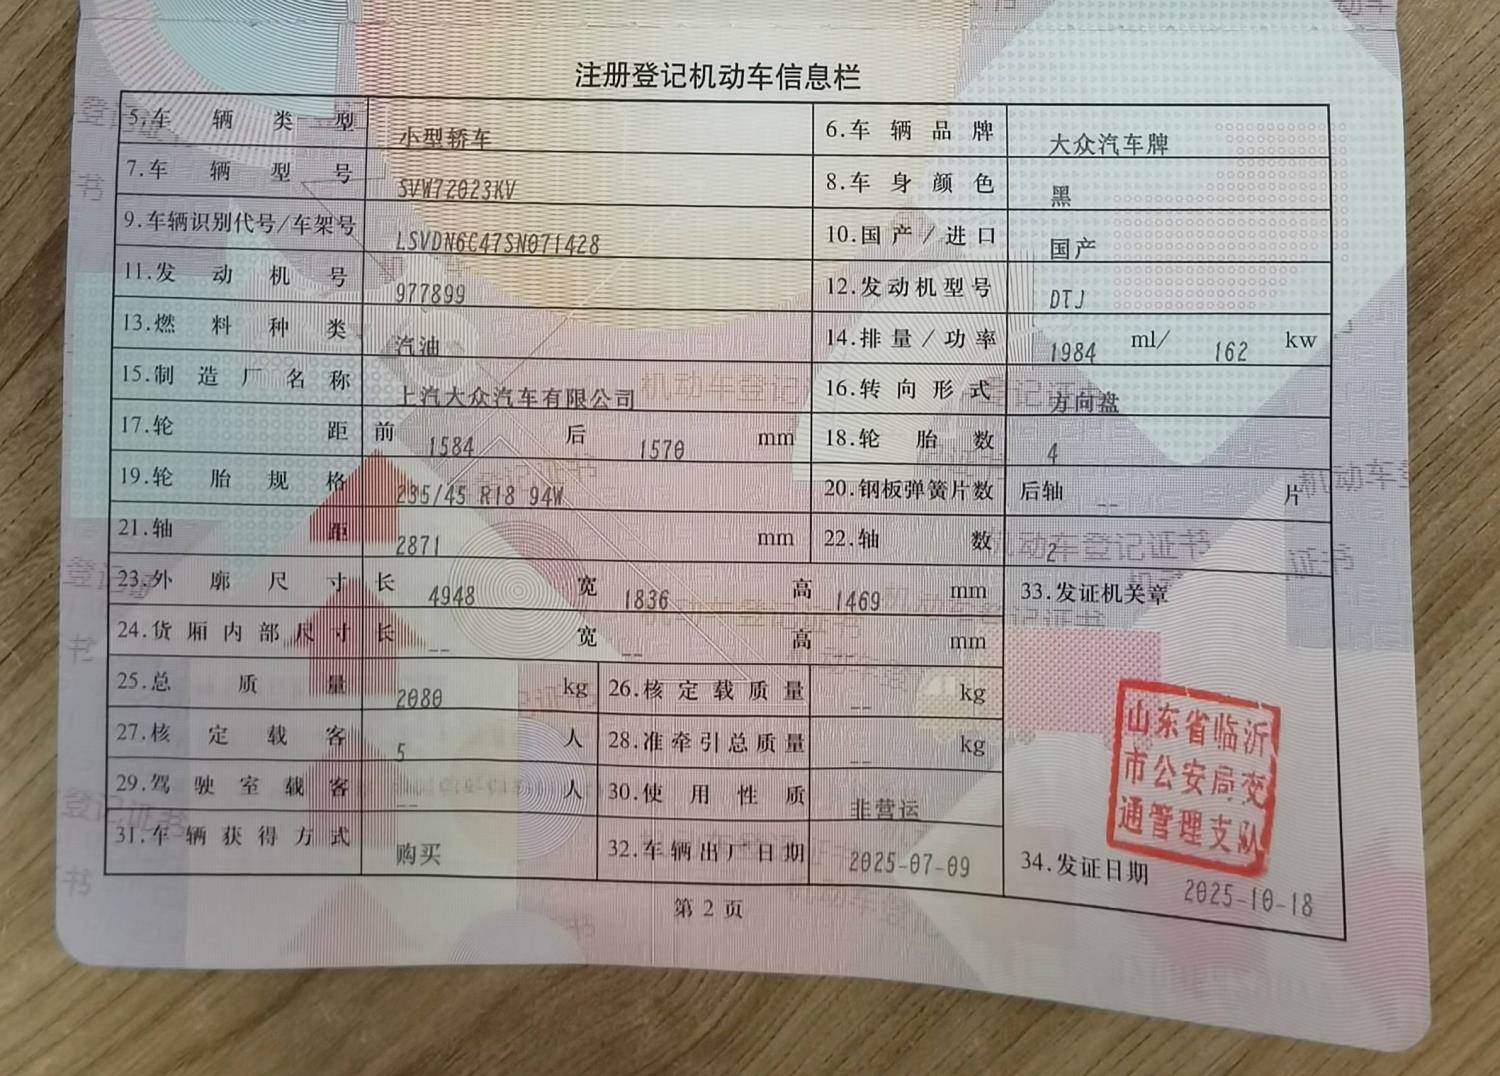 注册登记机动车信息栏
5.车辆类型 小型轿车 6.车辆品牌 大众汽车牌
7.车辆型号 SVW72023KV 8.车身颜色 黑
9.车辆识别代号/车架号 LSVDN6C47SN071428 10.国产/进口 国产
11.发动机号 977899 12.发动机型号 DTJ
13.燃料种类 汽油 14.排量/功率 1984 ml/ 162 kw
15.制造厂名称 上汽大众汽车有限公司 16.转向形式 方向盘
17.轮距 前 1584 后 1570 mm 18.轮胎数 4
19.轮胎规格 235/45 R18 94W 20.钢板弹簧片数 后轴 -- 片
21.轴距 2871 mm 22.轴数 2
23.外廓尺寸 长 4948 宽 1836 高 1469 mm 33.发证机关章
24.货厢内部尺寸 长 -- 宽 -- 高 mm
25.总质量 2080 kg 26.核定载质量 -- kg
27.核定载客 5 人 28.准牵引总质量 -- kg
29.驾驶室载客 -- 人 30.使用性质 非营运
31.车辆获得方式 购买 32.车辆出厂日期 2025-07-09 34.发证日期 2025-10-18
山东省临沂
市公安局交
通管理支队
第2页